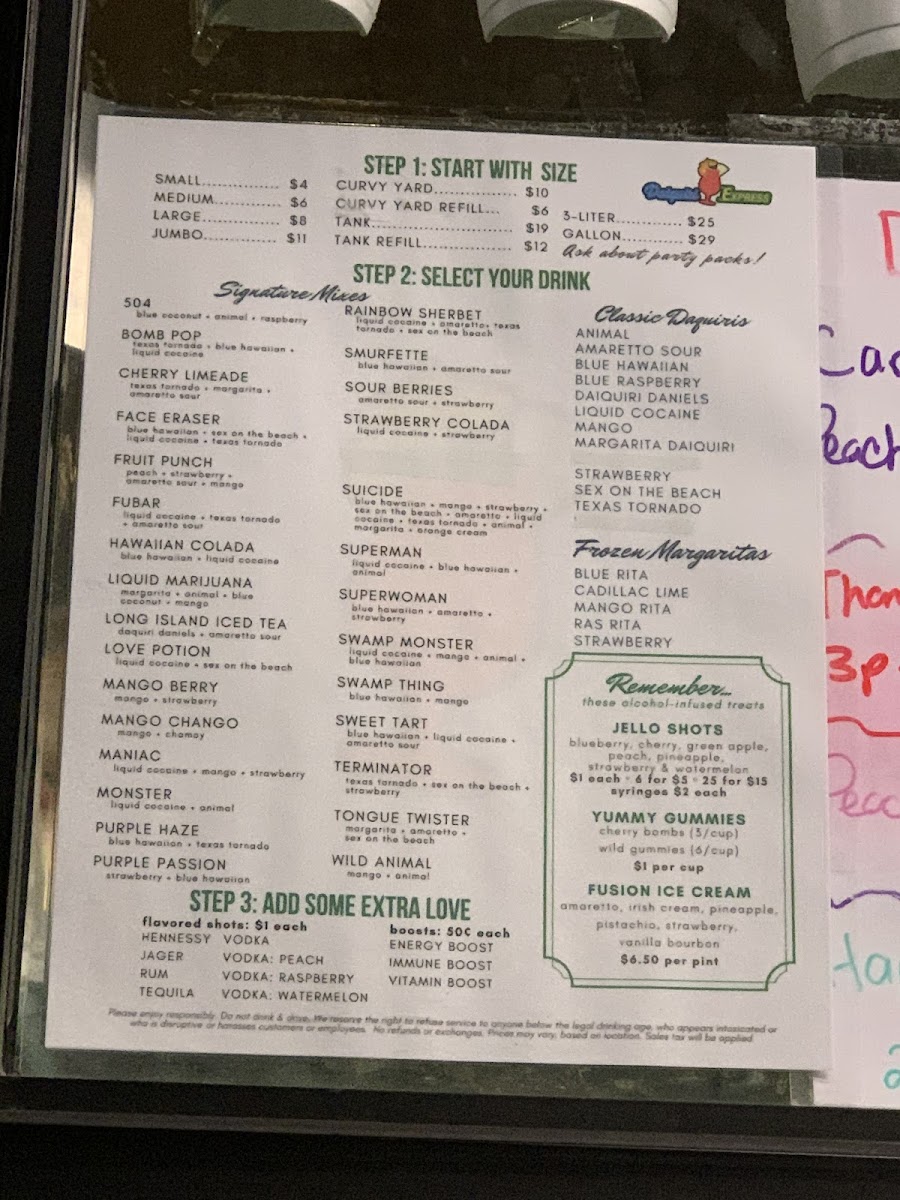 STEP 1: START WITH SIZE
Daiquiri EXPRESS
SMALL.............. $4
MEDIUM............ $6
LARGE.............. $8
JUMBO............. $11
CURVY YARD............... $10
CURVY YARD REFILL... $6
TANK......................... $19
TANK REFILL............... $12
3-LITER........... $25
GALLON.......... $29
Ask about party packs!
STEP 2: SELECT YOUR DRINK
Signature Mixes
504
blue coconut + animal + raspberry
BOMB POP
texas tornado + blue hawaiian +
liquid cocaine
CHERRY LIMEADE
texas tornado + margarita +
amaretto sour
FACE ERASER
blue hawaiian + sex on the beach +
liquid cocaine + texas tornado
FRUIT PUNCH
peach + strawberry +
amaretto sour + mango
FUBAR
liquid cocaine + texas tornado
+ amaretto sour
HAWAIIAN COLADA
blue hawaiian + liquid cocaine
LIQUID MARIJUANA
margarita + animal + blue
coconut + mango
LONG ISLAND ICED TEA
daquiri daniels + amaretto sour
LOVE POTION
liquid cocaine + sex on the beach
MANGO BERRY
mango + strawberry
MANGO CHANGO
mango + chamoy
MANIAC
liquid cocaine + mango + strawberry
MONSTER
liquid cocaine + animal
PURPLE HAZE
blue hawaiian + texas tornado
PURPLE PASSION
strawberry + blue hawaiian
RAINBOW SHERBET
liquid cocaine + amaretto+ texas
tornado + sex on the beach
SMURFETTE
blue hawaiian + amaretto sour
SOUR BERRIES
amaretto sour + strawberry
STRAWBERRY COLADA
liquid cocaine + strawberry
SUICIDE
blue hawaiian + mango + strawberry +
sex on the beach + amaretto + liquid
cocaine + texas tornado + animal +
margarita + orange cream
SUPERMAN
liquid cocaine + blue hawaiian +
animal
SUPERWOMAN
blue hawaiian + amaretto +
strawberry
SWAMP MONSTER
liquid cocaine + mango + animal +
blue hawaiian
SWAMP THING
blue hawaiian + mango
SWEET TART
blue hawaiian + liquid cocaine +
amaretto sour
TERMINATOR
texas tornado + sex on the beach +
strawberry
TONGUE TWISTER
margarita + amaretto +
sex on the beach
WILD ANIMAL
mango + animal
Classic Daquiris
ANIMAL
AMARETTO SOUR
BLUE HAWAIIAN
BLUE RASPBERRY
DAIQUIRI DANIELS
LIQUID COCAINE
MANGO
MARGARITA DAIQUIRI
STRAWBERRY
SEX ON THE BEACH
TEXAS TORNADO
Frozen Margaritas
BLUE RITA
CADILLAC LIME
MANGO RITA
RAS RITA
STRAWBERRY
Remember...
these alcohol-infused treats
JELLO SHOTS
blueberry, cherry, green apple,
peach, pineapple,
strawberry & watermelon
$1 each • 6 for $5 • 25 for $15
syringes $2 each
YUMMY GUMMIES
cherry bombs (3/cup)
wild gummies (6/cup)
$1 per cup
FUSION ICE CREAM
amaretto, irish cream, pineapple,
pistachio, strawberry,
vanilla bourbon
$6.50 per pint
STEP 3: ADD SOME EXTRA LOVE
flavored shots: $1 each
HENNESSY VODKA
JAGER VODKA: PEACH
RUM VODKA: RASPBERRY
TEQUILA VODKA: WATERMELON
boosts: 50¢ each
ENERGY BOOST
IMMUNE BOOST
VITAMIN BOOST
Please enjoy responsibly. Do not drink & drive. We reserve the right to refuse service to anyone below the legal drinking age, who appears intoxicated or
who is disruptive or harasses customers or employees. No refunds or exchanges. Prices may vary, based on location. Sales tax will be applied
3p